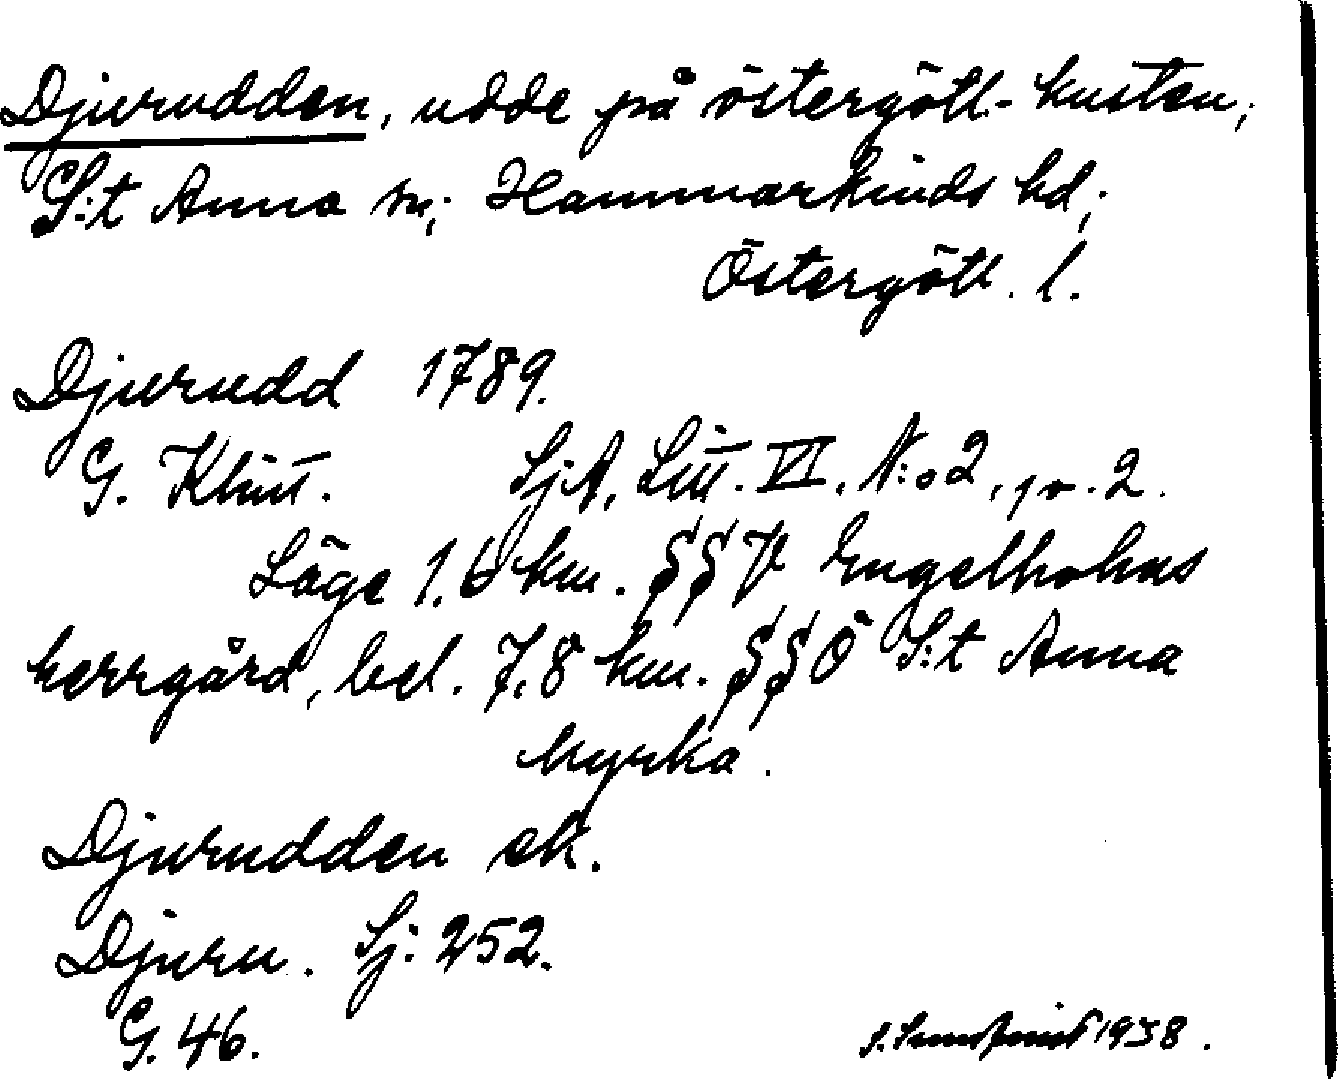 Djurudden, udde på östergötl. kusten,
S:t Anna sn; Hammarkinds hd;
Östergötl. l.
Djurudd 1789.
G. Klint. SjA, Litt. VI. N:o 2, p. 2.
Läge 1.6 km. SSV Engelholms
herrgård, bel. 7,8 km. SSÖ S:t Anna
kyrka.
Djurudden ek.
Djuru. Sj: 252.
G. 46.
1938.